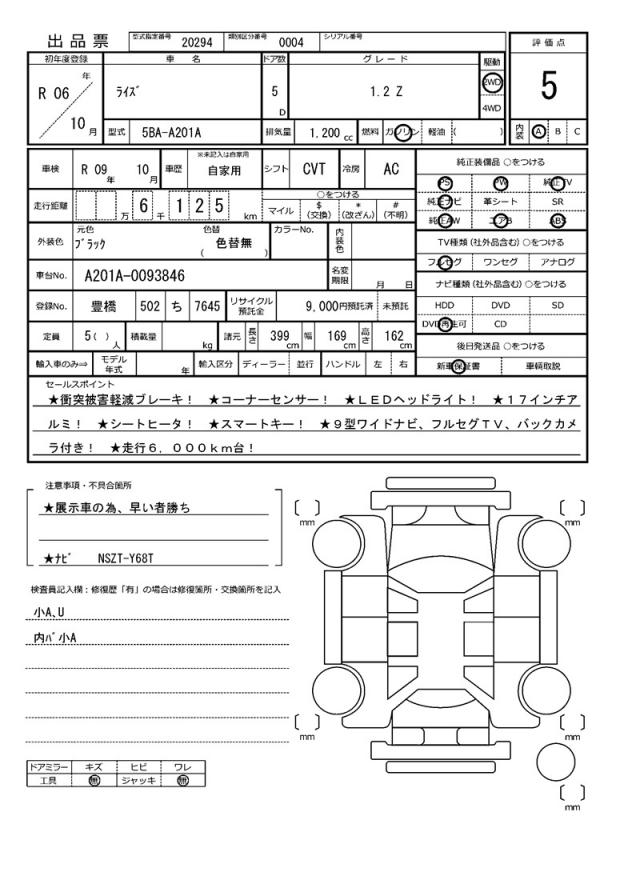 出品票 型式指定番号 20294 類別区分番号 0004 シリアル番号
評価点
5
初年度登録 車名 ドア数 グレード 駆動
R 06 年 ﾗｲｽﾞ 5 D 1.2 Z 2WD
10 月 4WD
型式 5BA-A201A 排気量 1.200 cc 燃料 ガソリン 軽油 ( ) 内装 A B C
車検 R 09 年 10 月 車歴 ※未記入は自家用 自家用 シフト CVT 冷房 AC
走行距離 万 6 千 1 2 5 km ○をつける
マイル $ (交換) * (改ざん) # (不明)
外装色 元色 ﾌﾞﾗｯｸ 色替 ( 色替無 ) カラーNo. 内装色
車台No. A201A-0093846 名変期限 月 日
登録No. 豊橋 502 ち 7645 リサイクル預託金 9,000円預託済 未預託
定員 5( ) 人 積載量 kg 諸元 長さ 399 cm 幅 169 cm 高さ 162 cm
輸入車のみ⇒ モデル年式 年 輸入区分 ディーラー 並行 ハンドル 左 右
純正装備品 ○をつける
PS PW 純正TV
純正ナビ 革シート SR
純正AW エアB ABS
TV種類 (社外品含む) ○をつける
フルセグ ワンセグ アナログ
ナビ種類 (社外品含む) ○をつける
HDD DVD SD
DVD再生可 CD
後日発送品 ○をつける
新車保証書 車輌取説
セールスポイント
★衝突被害軽減ブレーキ！ ★コーナーセンサー！ ★ＬＥＤヘッドライト！ ★１７インチア
ルミ！ ★シートヒータ！ ★スマートキー！ ★９型ワイドナビ、フルセグＴＶ、バックカメ
ラ付き！ ★走行６，０００ｋｍ台！
注意事項・不具合箇所
★展示車の為、早い者勝ち
★ﾅﾋﾞ NSZT-Y68T
検査員記入欄：修復歴「有」の場合は修復箇所・交換箇所を記入
小A､U
内ﾊﾞ小A
ドアミラー キズ ヒビ ワレ
工具 無 ジャッキ 無
[ ] mm
[ ] mm
[ ] mm
[ ] mm
[ ] mm